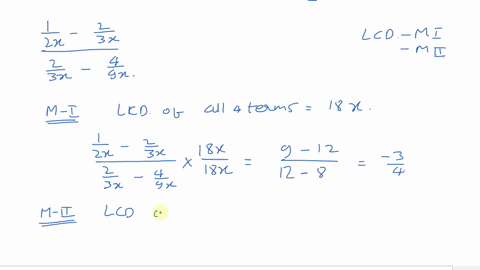 1/2x - 2/3x
2/3x - 4/9x.
LCD. - M I
- M II
M-I LKD. of all 4 terms = 18x.
(1/2x - 2/3x)/(2/3x - 4/9x) × 18x/18x = (9 - 12)/(12 - 8) = -3/4
M-II LCD